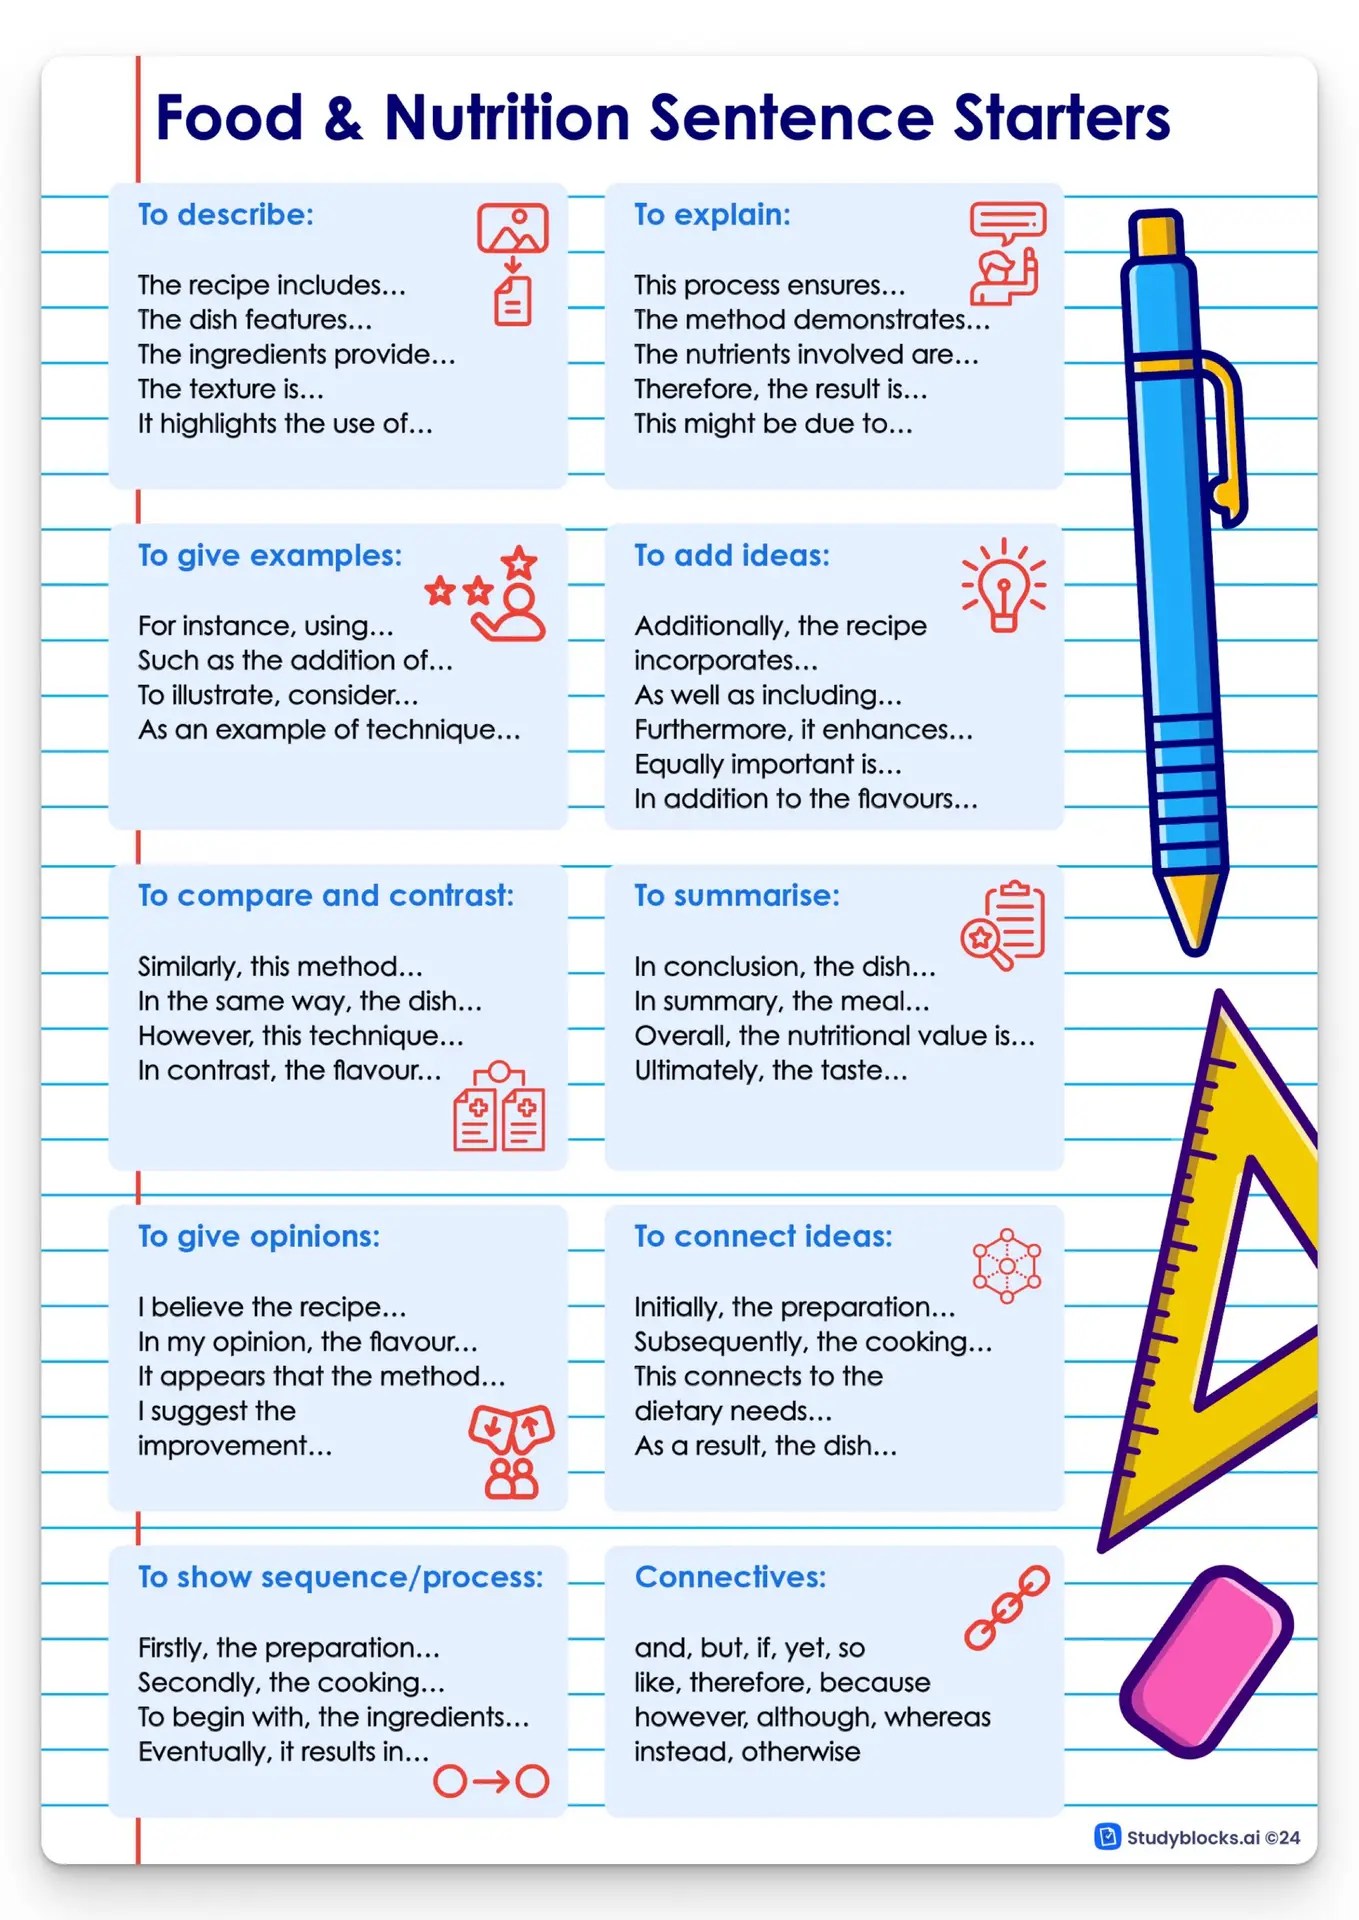 Food & Nutrition Sentence Starters
To describe:
The recipe includes...
The dish features...
The ingredients provide...
The texture is...
It highlights the use of...
To explain:
This process ensures...
The method demonstrates...
The nutrients involved are...
Therefore, the result is...
This might be due to...
To give examples:
For instance, using...
Such as the addition of...
To illustrate, consider...
As an example of technique...
To add ideas:
Additionally, the recipe
incorporates...
As well as including...
Furthermore, it enhances...
Equally important is...
In addition to the flavours...
To compare and contrast:
Similarly, this method...
In the same way, the dish...
However, this technique...
In contrast, the flavour...
To summarise:
In conclusion, the dish...
In summary, the meal...
Overall, the nutritional value is...
Ultimately, the taste...
To give opinions:
I believe the recipe...
In my opinion, the flavour...
It appears that the method...
I suggest the
improvement...
To connect ideas:
Initially, the preparation...
Subsequently, the cooking...
This connects to the
dietary needs...
As a result, the dish...
To show sequence/process:
Firstly, the preparation...
Secondly, the cooking...
To begin with, the ingredients...
Eventually, it results in...
Connectives:
and, but, if, yet, so
like, therefore, because
however, although, whereas
instead, otherwise
Studyblocks.ai ©24